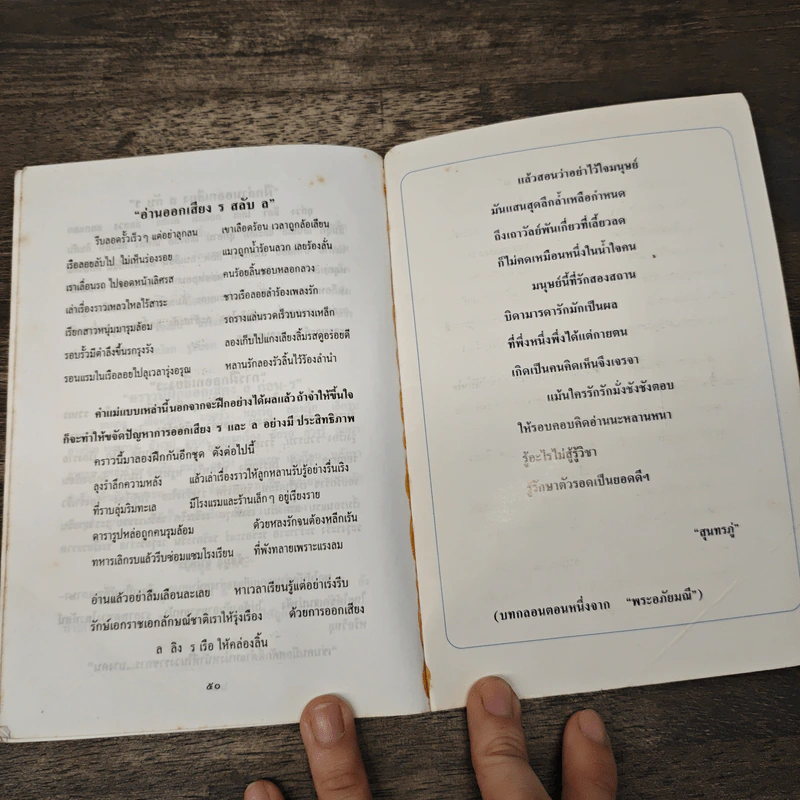 “อ่านออกเสียง ร สลับ ล”
รีบลอดรั้วเร็วๆ แต่อย่าลุกลน เขาเลือดร้อน เวลาถูกล้อเลียน
เรือลอยลับไป ไม่เห็นร่องรอย แมวถูกน้ำร้อนลวก เลยร้องลั่น
เราเลื่อนรถ ไปจอดหน้าเลิศรส คนร้อยลิ้นชอบหลอกลวง
เล่าเรื่องราวเหลวไหลไร้สาระ ชาวเรือลอยลำร้องเพลงรัก
เรียกสาวหนุ่มมารุมล้อม รถรางแล่นรวดเร็วบนรางเหล็ก
รอบรั้วมีตำลึงขึ้นรกรุงรัง ลองเก็บไปแกงเลียงลิ้มรสดูอร่อยดี
รอนแรมในเรือลอยไปลุเวลารุ่งอรุณ หลานรักลองรัวลิ้นไว้ร้องลำนำ
คำแม่แบบเหล่านี้นอกจากจะฝึกอย่างได้ผลแล้ว ถ้าจำให้ขึ้นใจ
ก็จะทำให้ขจัดปัญหาการออกเสียง ร และ ล อย่างมี ประสิทธิภาพ
คราวนี้มาลองฝึกกันอีกชุด ดังต่อไปนี้
ลุงรำลึกความหลัง แล้วเล่าเรื่องราวให้ลูกหลานรับรู้อย่างรื่นเริง
ที่ราบลุ่มริมทะเล มีโรงแรมและร้านเล็กๆ อยู่เรียงราย
ดารารูปหล่อถูกคนรุมล้อม ด้วยหลงรักจนต้องหลีกเร้น
ทหารเลิกรบแล้วรีบซ่อมแซมโรงเรียน ที่พังทลายเพราะแรงลม
อ่านแล้วอย่าลืมเลือนละเลย หาเวลาเรียนรู้แต่อย่าเร่งรีบ
รักษ์เอกราชเอกลักษณ์ชาติเราให้รุ่งเรือง ด้วยการออกเสียง
ล ลิง ร เรือ ให้คล่องลิ้น
๕๐
แล้วสอนว่าอย่าไว้ใจมนุษย์
มันแสนสุดลึกล้ำเหลือกำหนด
ถึงเถาวัลย์พันเกี่ยวที่เลี้ยวลด
ก็ไม่คดเหมือนหนึ่งในน้ำใจคน
มนุษย์นี้ที่รักสองสถาน
บิดามารดารักมักเป็นผล
ที่พึ่งหนึ่งพึ่งได้แต่กายตน
เกิดเป็นคนคิดเห็นจึงเจรจา
แม้นใครรักรักมั่งชังชังตอบ
ให้รอบคอบคิดอ่านนะหลานหนา
รู้อะไรไม่สู้รู้วิชา
รู้รักษาตัวรอดเป็นยอดดีฯ
“สุนทรภู่”
(บทกลอนตอนหนึ่งจาก “พระอภัยมณี”)